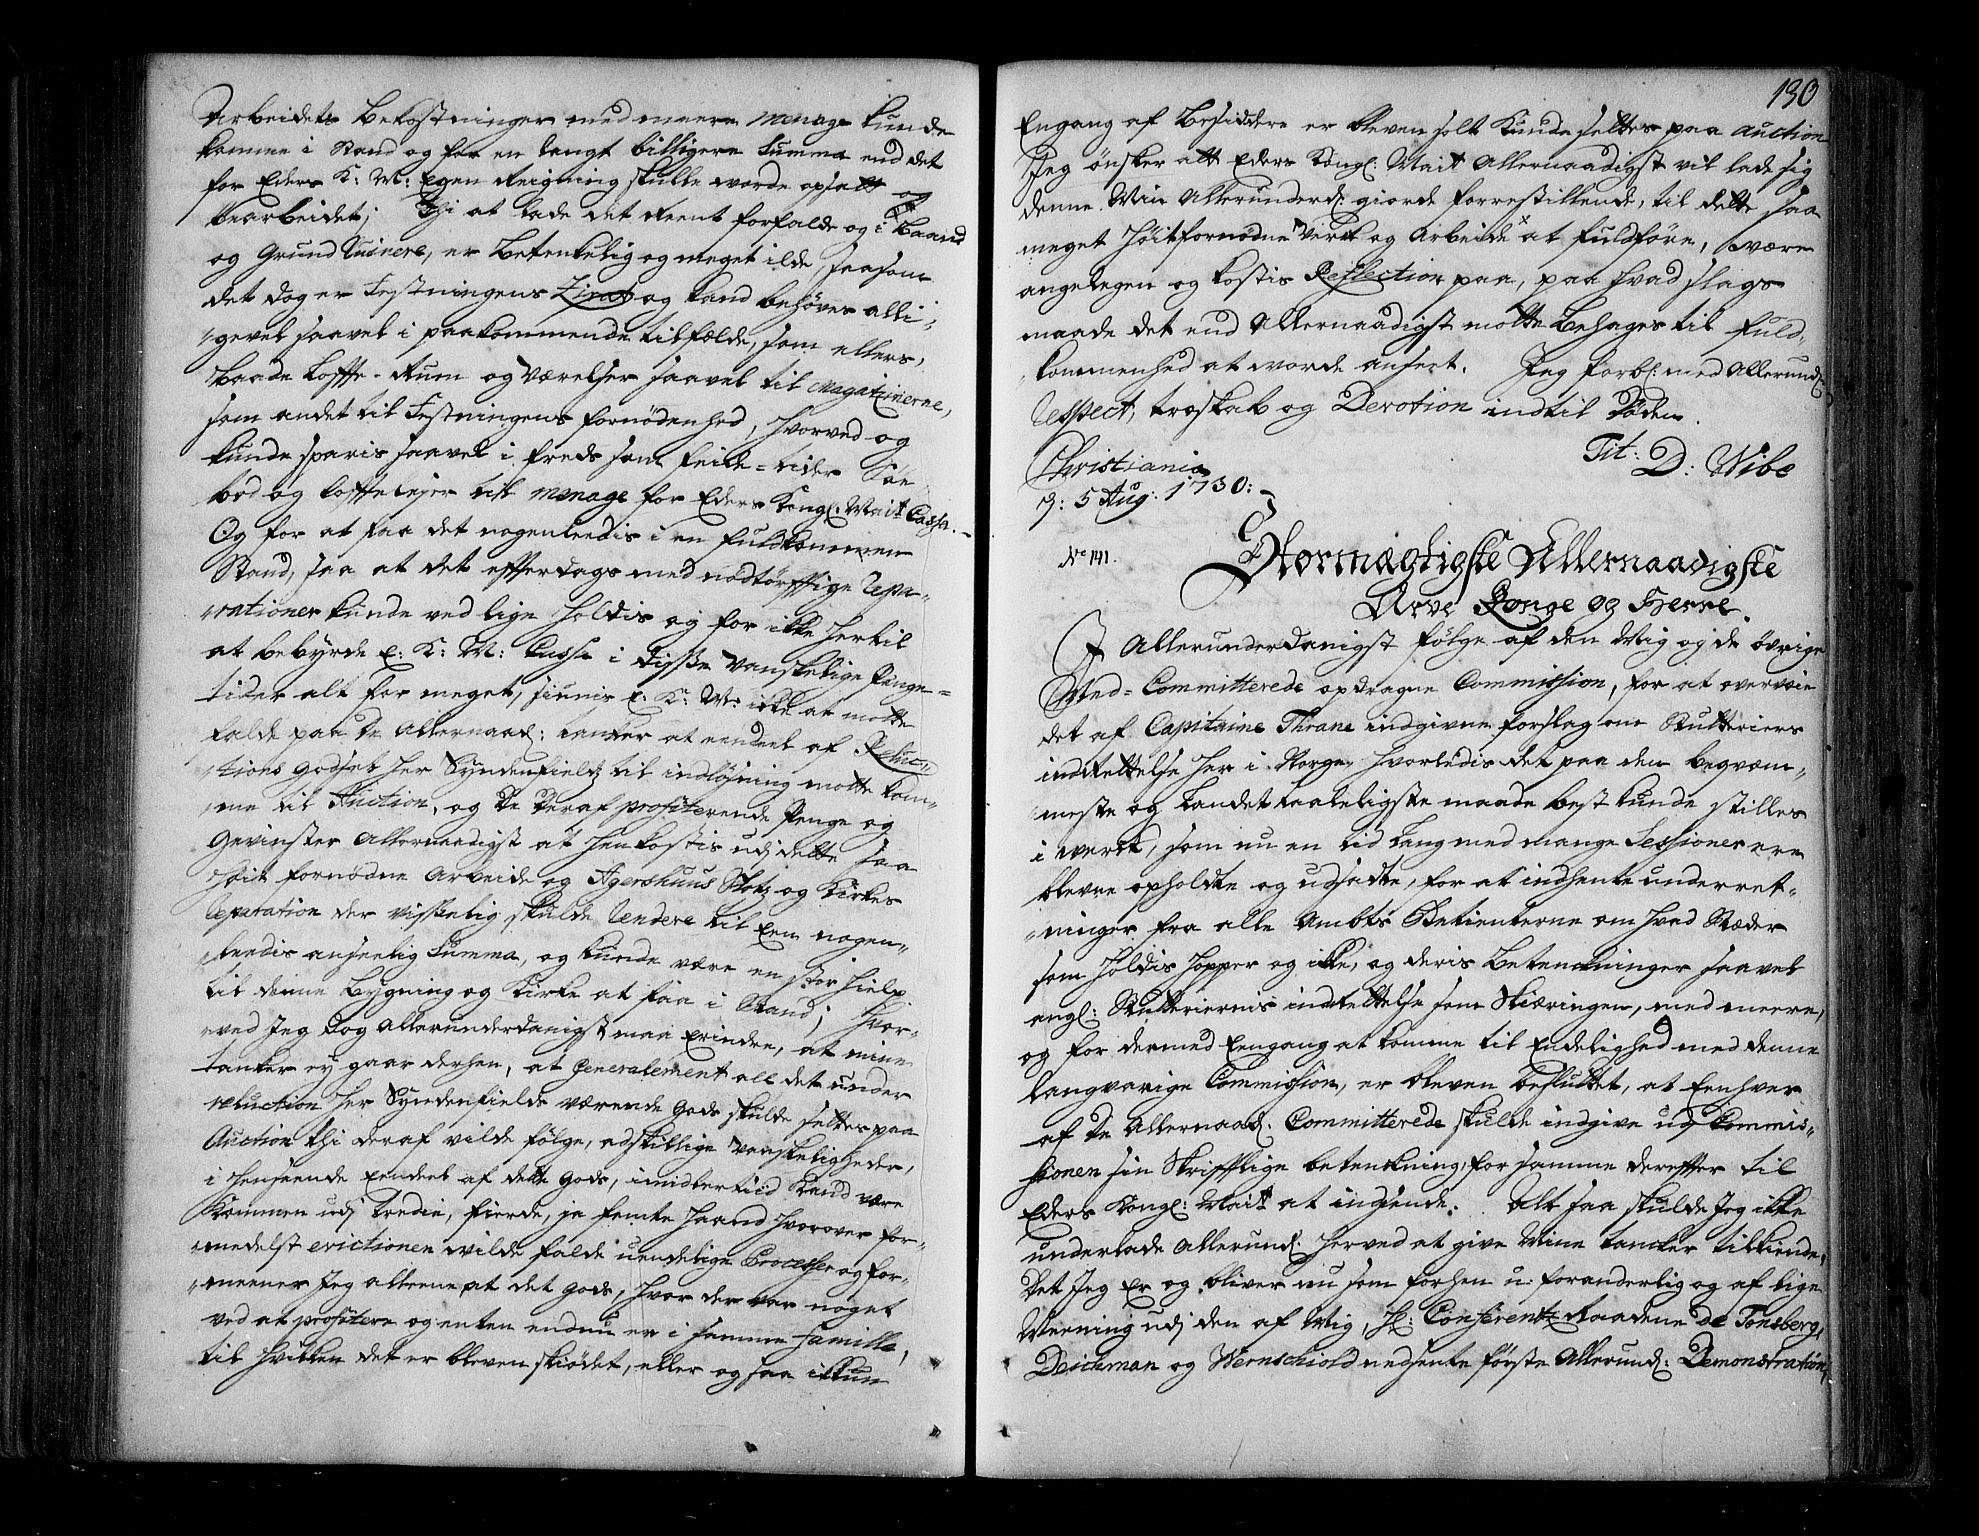 Arbeidets Bekostninger med meere menage kunde
komme i Stand og for en langt billigere Summa end det
for Eders K: M: Egen Reigning skulle worde opsatt og
bearbeidet; Thi at lade det Reent forfalde og i baand
og Grund Ruinere, er Betenkelig og meget ilde, saasom
det dog er Festningens Zirat og kand behøves alli-
gevel saavel i paakommende tilfælde, som ellers,
baade Loffte-Rum og Værelser saavel til Magatzinerne,
som andet til Festningens fornødenhed, hvorved og
kunde sparis saavel i freds som feide-tider Søe
bod og loffteleyer til menage for Eders Kongl: Mait Cassa.
Og for at faa det nogenledis i en fuldkommen
Stand, saa at det efterdags med nødtørfftige Repa-
rationer kunde ved lige holdis og for ikke hertil
at bebyrde E: K: M: Cassa i disse Vanskelige Penge-
tider alt for meget, siunis E: K: M: ikke at motte
falde paa de Allernaad: tanker at eendeel af Reluc-
tions godset her Syndenfields til indløsning motte kom-
me til Auction, og de deraf profiterende Penge og
Gevinster Allernaadigst at henkostis udj dette saa
høit fornødne Arbeide og Agershuus Slotz og Kirkes
Reparation der visselig skulde Rendere til een nogen-
ledis anseelig Summa, og kunde være en stor hielp
til denne Bygning og Kirke at faa i Stand; hvor-
ved Jeg dog Allerunderdanigst maa Erindre, at mine
tanker ey gaar derhen, at Generalement alt det under
reluction her Syndenfields værende Gods skulde settes paa
Auction thi deraf vilde følge, adskillige Vanskeligheder,
i henseende Eendeel af dette Gods, imidlertiid kand være
kommen udj tredie, fierde, ja femte haand hvorover for-
medelst evictionen wilde falde uendelige Processer og for-
meener Jeg alleene at det Gods, hvor der var noget
ved at profitere og enten endnu er i samme Famille,
til hvilken det er bleven skiødet, eller og saa ikkun
130
Engang af Besiddere er bleven solt kunde settes paa Auction
Jeg ønsker att Eders Kongl: Mait Allernaadigst vil lade sig
denne Min Allerunderd: giorde forrestillende, til dette saa
meget høitfornødne Verk og Arbeide at fuldføre, være
angelegen og kostis Reflection paa, paa hvad slags
maade det end Allernaadigst motte behages til fuld-
kommenhed at worde ansett. Jeg forbl: med Allerund:
Respect, troskab og Devotion indtil Døden.
Tit: D: Wibe
Christiania
d: 5 Aug: 1730:
No 141.
Stormægtigste Allernaadigste
Arve Konge og Herre
I Allerunderdanigst følge af den Mig og de øvrige
Med-Committerede opdragne Commission, for at overveie
det af Capitaine Thrane indgivne forslag om Stutteriers
indrettelse her i Norge, hvorledis det paa den beqvem-
meste og Landet taaleligste maade best kunde stilles
i werk, som nu en tid lang med mange Sessioner ere
blevne opholdte og udsadte, for at indhente underret-
ninger fra alle Ambts Betienterne om hvad Stæder
som holdis hopper og ikke, og deris Betenckninger saavel
angl: Stutteriernis indrettelse som Skiæringen, med meere,
og for dermed Eengang at komme til Endelighed med denne
langvarige Commission, er bleven besluttet, at Eenhver
af de Allernaad: Committerede skulde indgive udj Commis-
sionen sin Skrifftlige betenckning, for samme derefter til
Eders Kongl: Mait at indsende. Alt saa skulde Jeg ikke
underlade Allerund: herved at give Mine tancker tilkiende,
Det Jeg Er og bliver nu som forhen u-foranderlig og af lige
Meening udj den af Mig, H: Conferentz Raadene de Tonsberg,
Deichman og Wernschiold nedsente første Allerund: Demonstration,